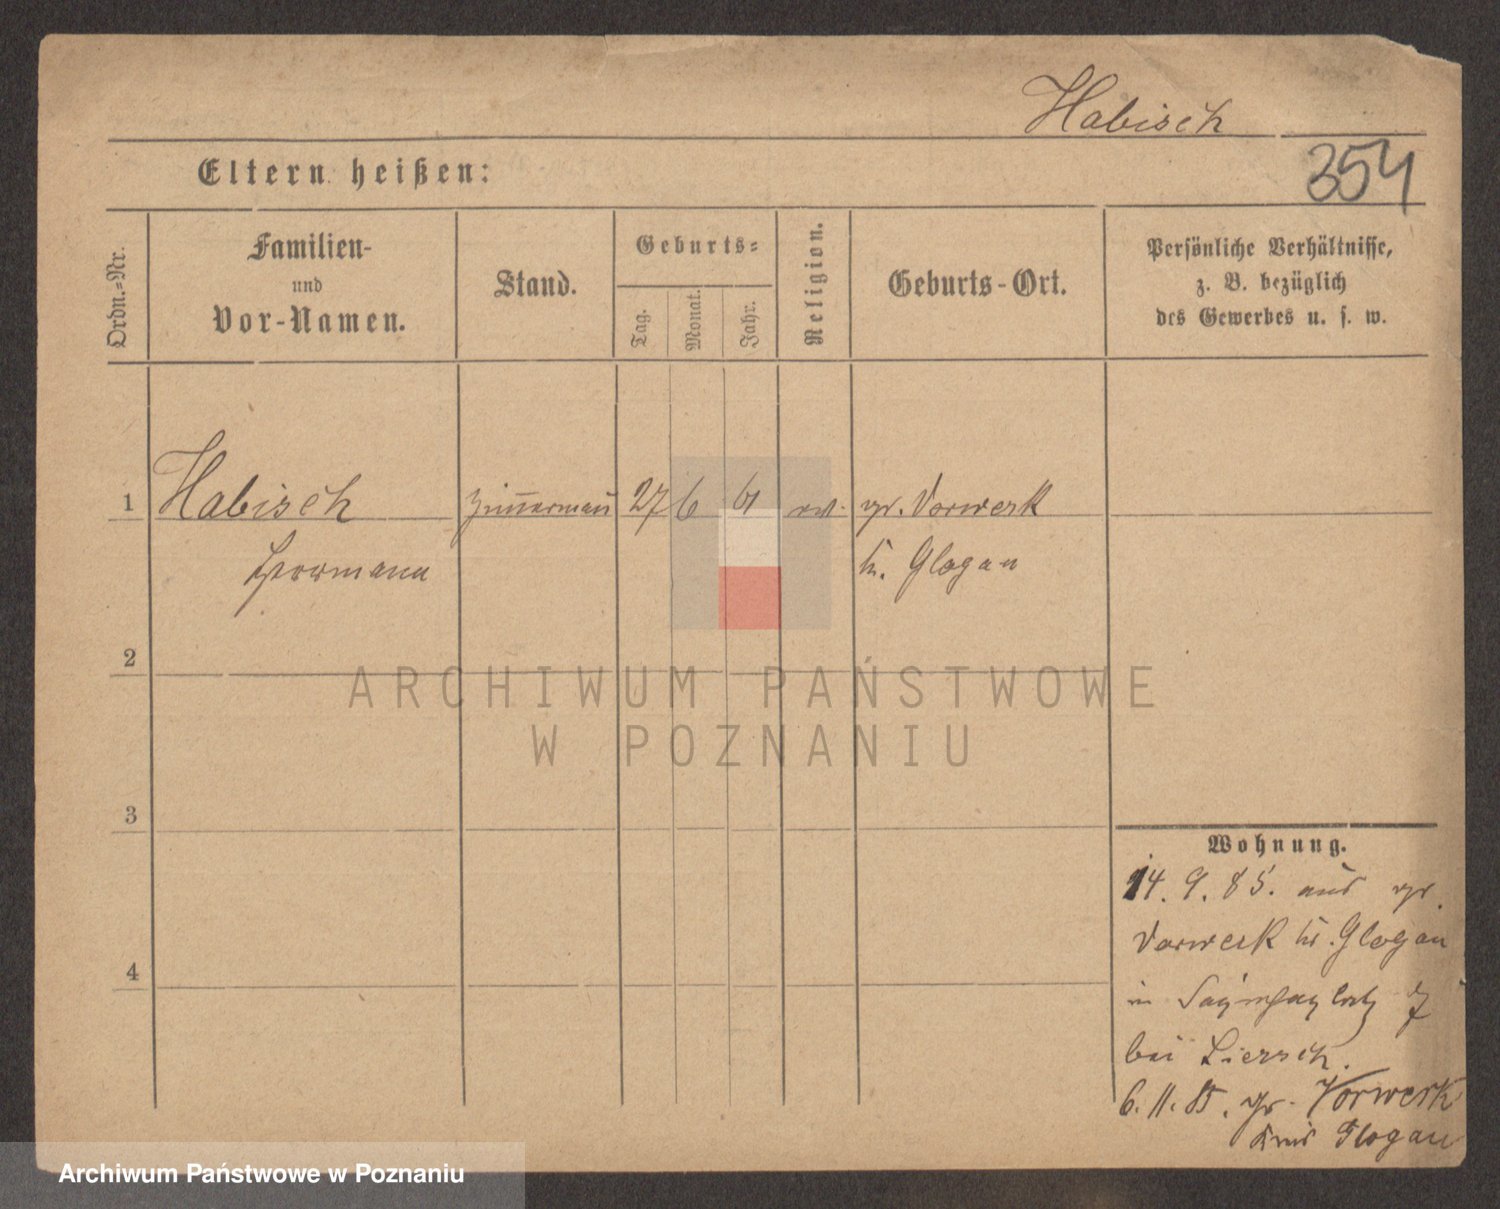 Habisch
354
Eltern heißen:
Ordn.=Nr.
Familien-
und
Vor-Namen.
Stand.
Geburts=
Tag.
Monat.
Jahr.
Religion.
Geburts-Ort.
Persönliche Verhältnisse,
z. B. bezüglich
des Gewerbes u. s. w.
1 Habisch Zimmermann 27 6 61 ev. gr. Vorwerk
Herrmann kr. Glogau
2
ARCHIWUM PAŃSTWOWE
W POZNANIU
3
4
Wohnung.
14. 9. 85. aus gr.
Vorwerk kr. Glogau
in
bei Liersch.
6. 11. 85. gr. Vorwerk
Kreis Glogau
Archiwum Państwowe w Poznaniu